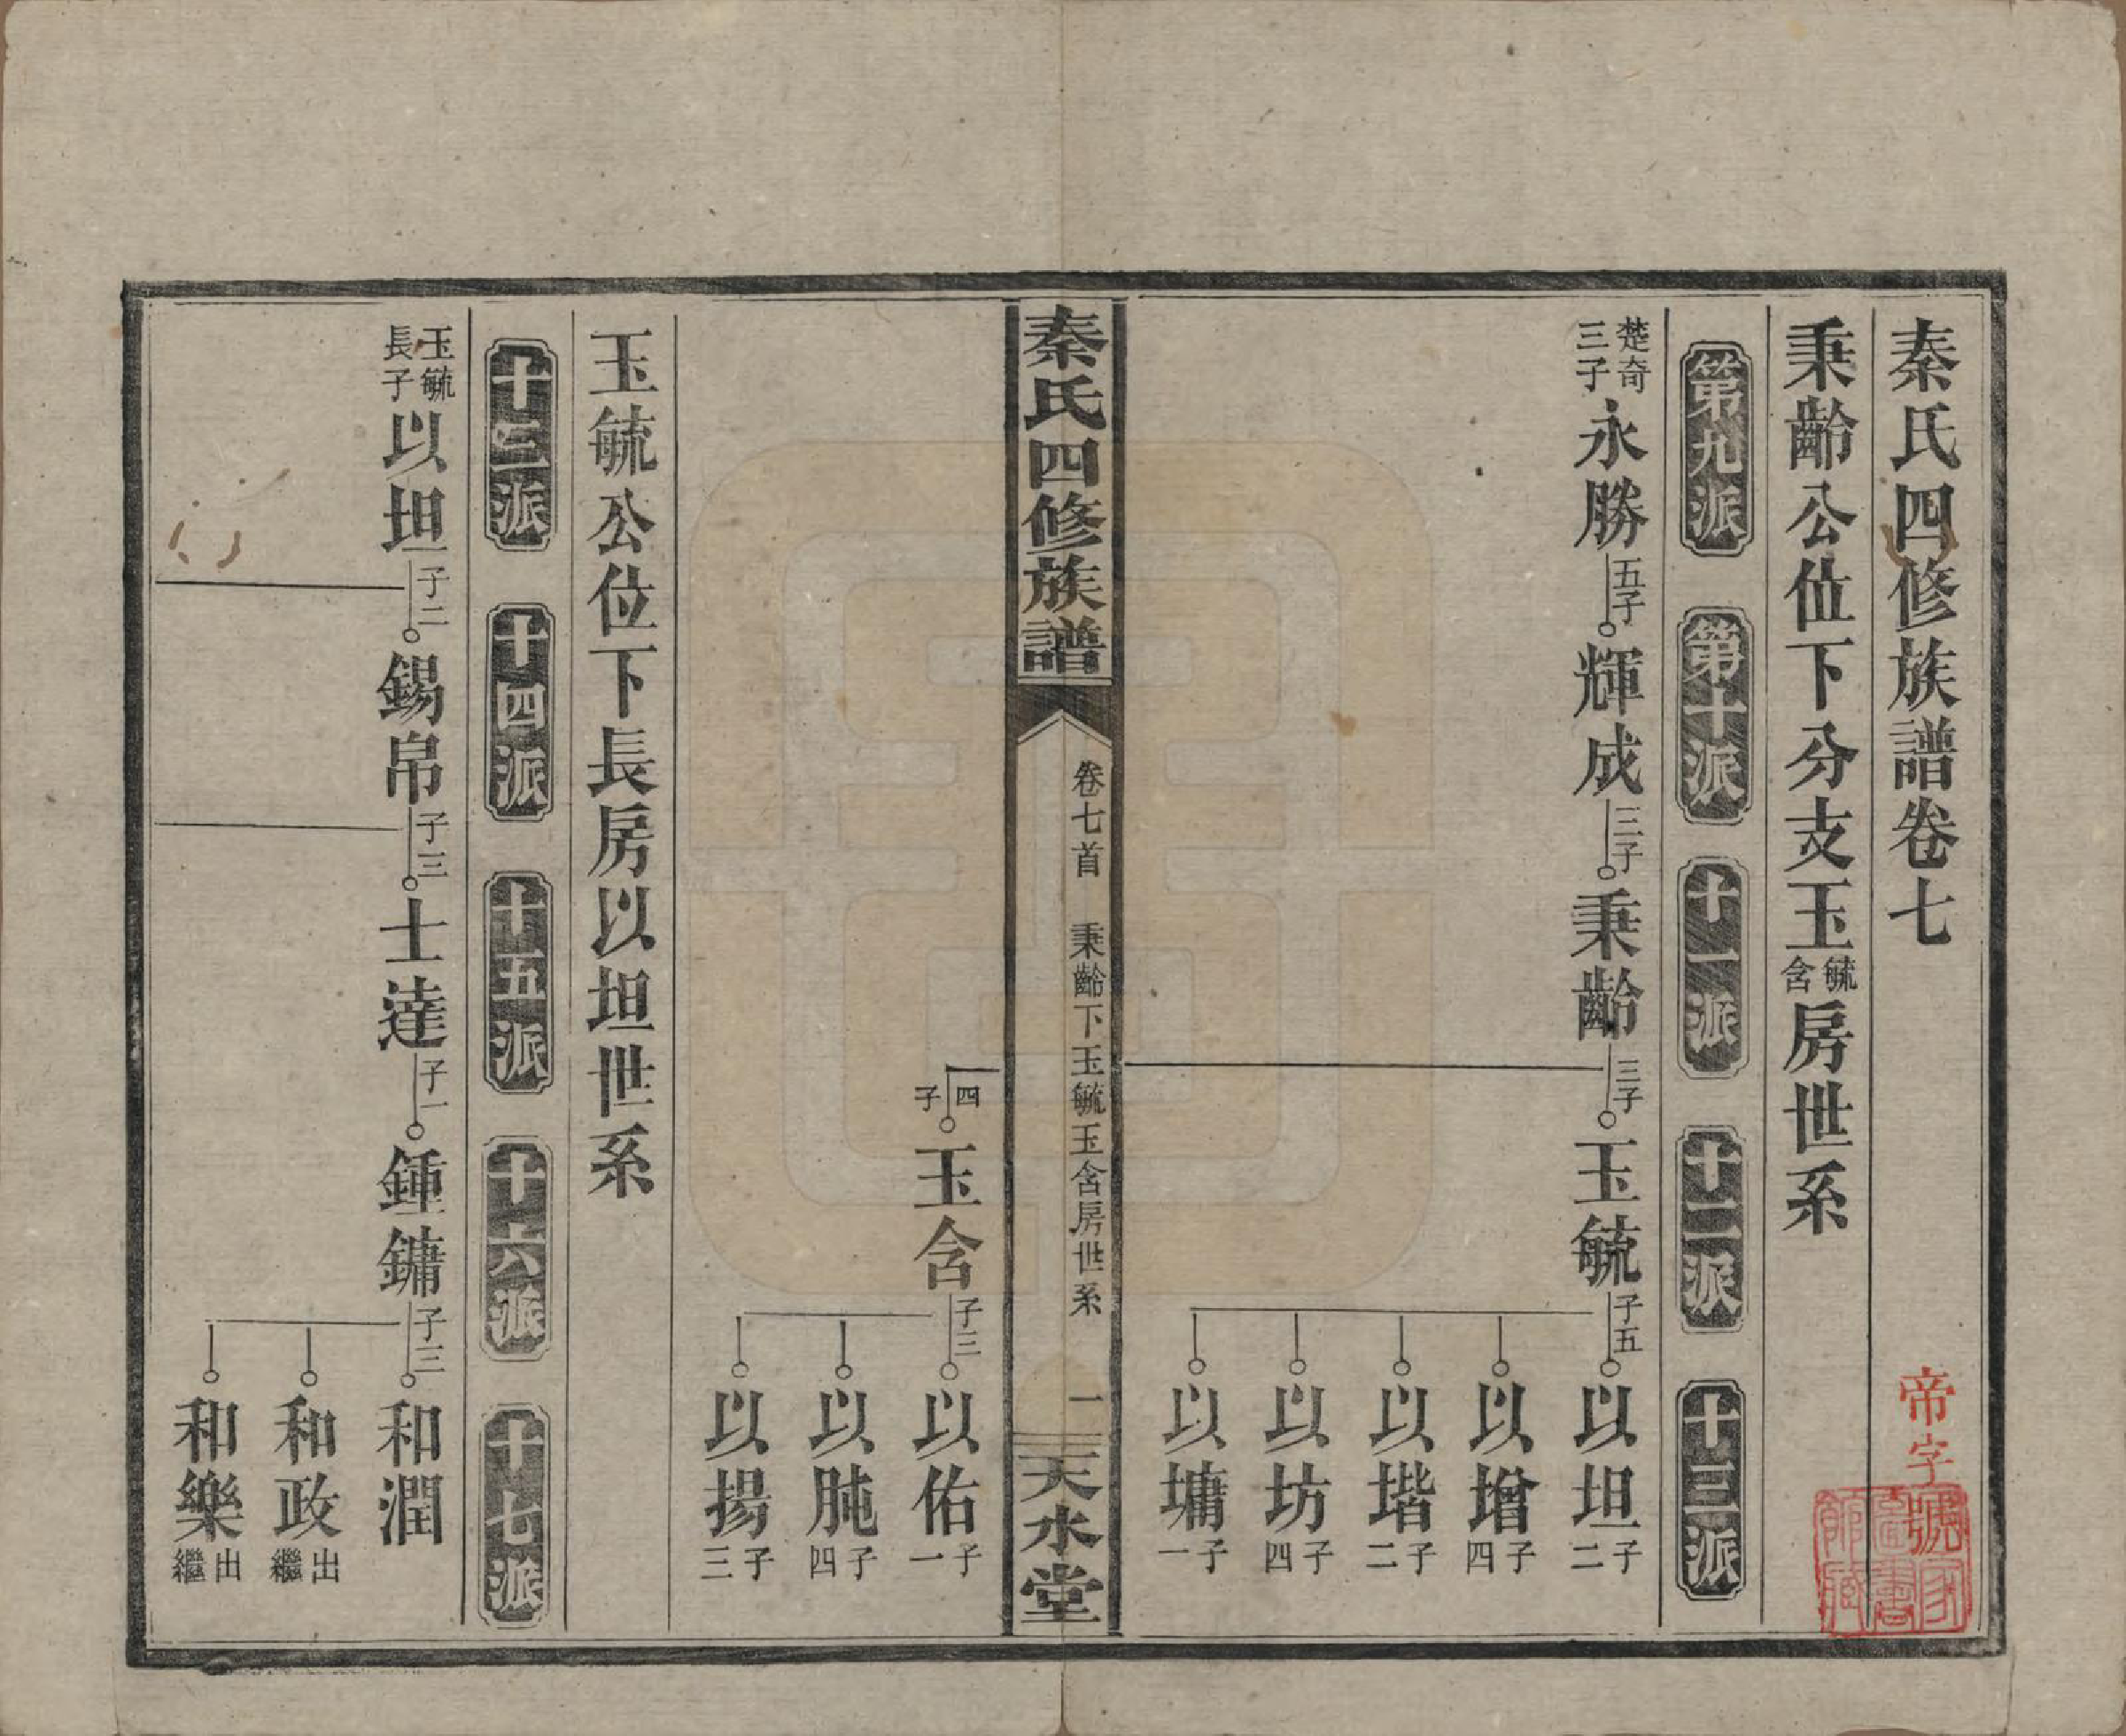 秦氏四修族譜卷七
帝字號
國家圖書館藏
秉齡公位下分支玉毓含房世系
第九派 第十派 十一派 十二派 十三派
楚奇三子 永勝 五子 輝成 三子 秉齡 三子 玉毓 子五 以坦 子二
以增 子四
以堦 子二
以坊 子四
以墉 子一
秦氏四修族譜 卷七首 秉齡下玉毓玉含房世系 一 天水堂
四子 玉含 子三 以佑 子一
以肫 子四
以揚 子三
玉毓公位下長房以坦世系
十三派 十四派 十五派 十六派 十七派
玉毓長子 以坦 子二 錫帛 子三 士達 子一 鍾鏞 子三 和潤
和政 出繼
和樂 出繼